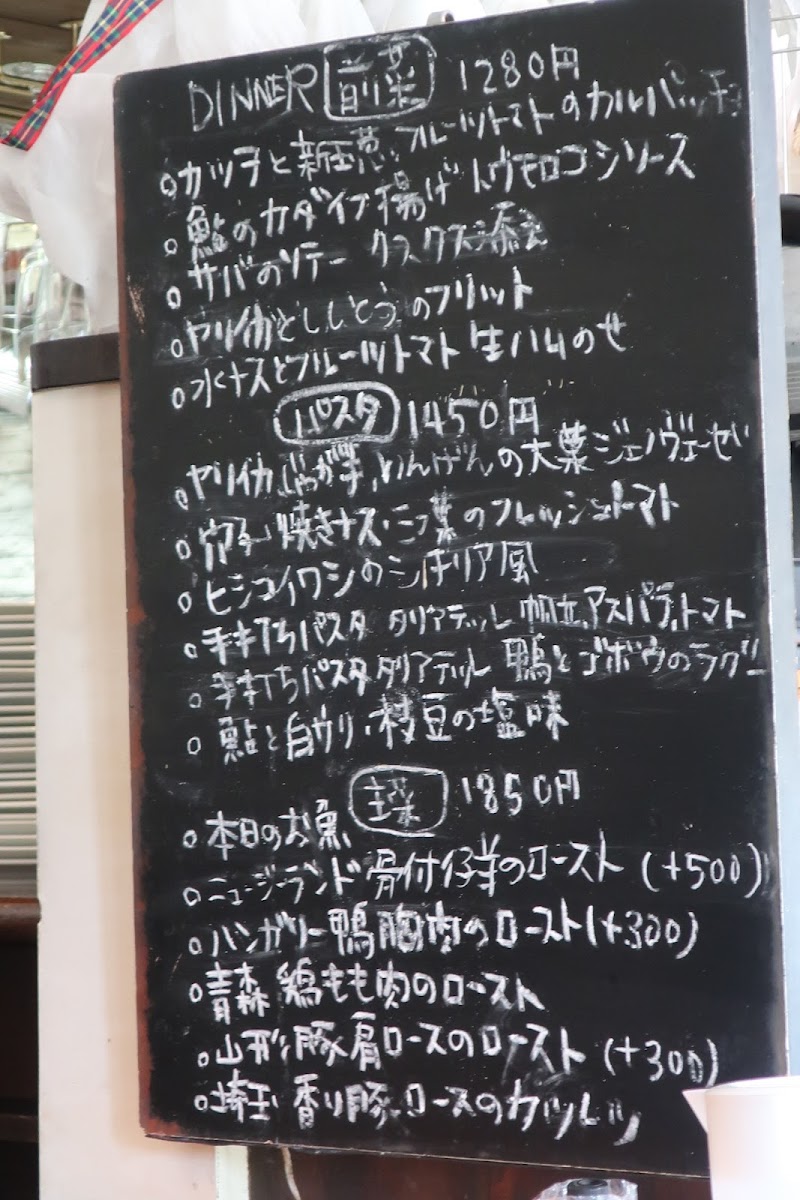 DINNER 前菜 1280円
○カツヲと新玉葱、フルーツトマトのカルパッチョ
○鮎のカダイフ揚げ トウモロコシソース
○サバのソテー クスクス添え
○ヤリイカとししとうのフリット
○水ナスとフルーツトマト 生ハムのせ
パスタ 1450円
○ヤリイカ、じゃが芋、いんげんの大葉ジェノヴェーゼ
○穴子・焼きナス・三つ葉のフレッシュトマト
○ヒシコイワシのシチリア風
○手打ちパスタ タリアテッレ 帆立、アスパラ、トマト
○手打ちパスタ タリアテッレ 鴨とゴボウのラグー
○鮎と白ウリ・枝豆の塩味
主菜 1850円
○本日のお魚
○ニュージーランド 骨付仔羊のロースト (+500)
○ハンガリー鴨胸肉のロースト(+300)
○青森 鶏もも肉のロースト
○山形豚肩ロースのロースト (+300)
○埼玉 香り豚ロースのカツレツ